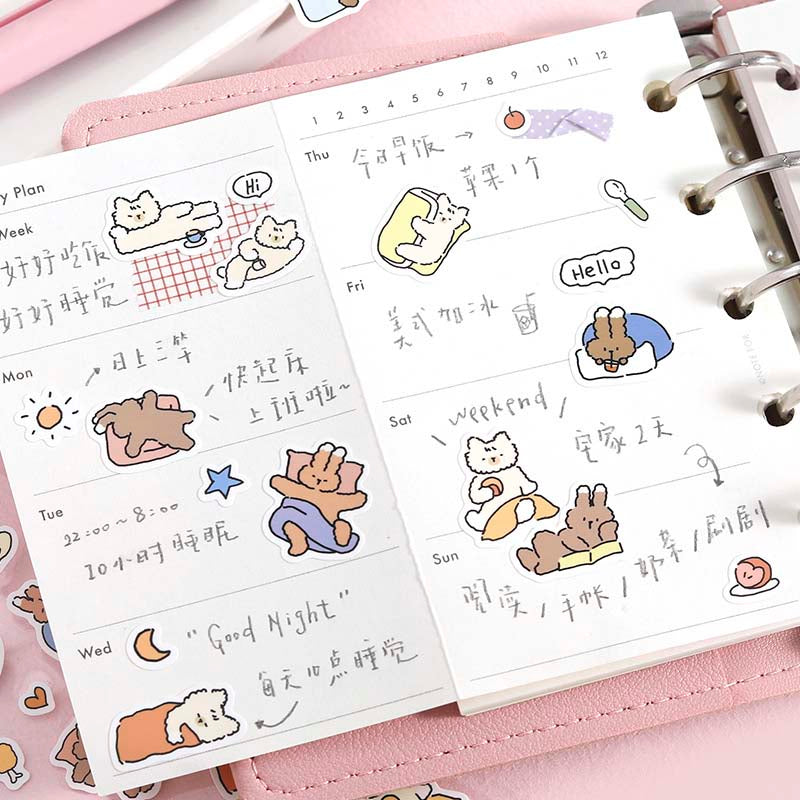 y Plan
Week
Hi
好好吃饭
好好睡觉
Mon
日上三竿
快起床
上班啦~
Tue
22:00~8:00
10小时睡眠
Wed
"Good Night"
每天10点睡觉
1 2 3 4 5 6 7 8 9 10 11 12
Thu
今日早饭 →
苹果1个
Fri
Hello
美式加冰
Sat
\ weekend /
宅家2天
Sun
阅读/手帐/奶茶/刷剧